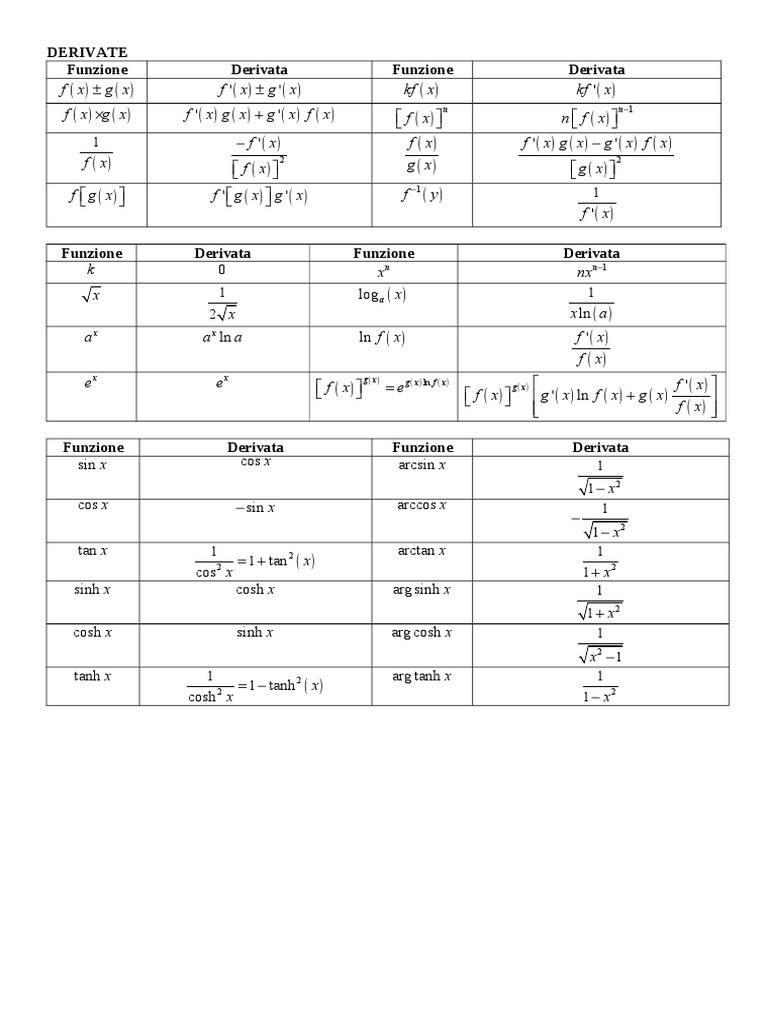 DERIVATE
Funzione Derivata Funzione Derivata
f(x) ± g(x) f'(x) ± g'(x) kf(x) kf'(x)
f(x)×g(x) f'(x)g(x)+g'(x)f(x) [f(x)]^n n[f(x)]^(n−1)
1/f(x) −f'(x)/[f(x)]^2 f(x)/g(x) (f'(x)g(x)−g'(x)f(x))/[g(x)]^2
f[g(x)] f'[g(x)]g'(x) f^(−1)(y) 1/f'(x)
Funzione Derivata Funzione Derivata
k 0 x^n nx^(n−1)
√x 1/(2√x) log_a(x) 1/(x ln(a))
a^x a^x ln a ln f(x) f'(x)/f(x)
e^x e^x [f(x)]^(g(x)) = e^(g(x) ln f(x)) [f(x)]^(g(x)) [g'(x) ln f(x) + g(x) f'(x)/f(x)]
Funzione Derivata Funzione Derivata
sin x cos x arcsin x 1/√(1−x^2)
cos x −sin x arccos x −1/√(1−x^2)
tan x 1/cos^2 x = 1+tan^2(x) arctan x 1/(1+x^2)
sinh x cosh x arg sinh x 1/√(1+x^2)
cosh x sinh x arg cosh x 1/√(x^2−1)
tanh x 1/cosh^2 x = 1−tanh^2(x) arg tanh x 1/(1−x^2)